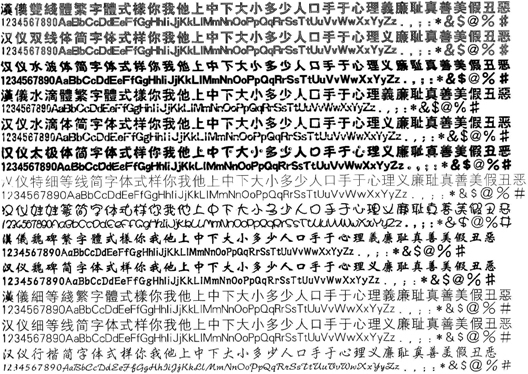 漢儀雙綫體繁字體式樣你我他上中下大小多少人口手于心理義廉耻真善美假丑惡
1234567890AaBbCcDdEeFfGgHhIiJjKkLlMmNnOoPpQqRrSsTtUuVvWwXxYyZz . , : ; * & $ @ % #
汉仪双线体简字体式样你我他上中下大小多少人口手于心理义廉耻真善美假丑恶
1234567890AaBbCcDdEeFfGgHhIiJjKkLlMmNnOoPpQqRrSsTtUuVvWwXxYyZz . , : ; * & $ @ % #
汉仪水波体简字体式样你我他上中下大小多少人口手于心理义廉耻真善美假丑恶
1234567890AaBbCcDdEeFfGgHhIiJjKkLlMmNnOoPpQqRrSsTtUuVvWwXxYyZz . , : ; * & $ @ % #
漢儀水滴體繁字體式樣你我他上中下大小多少人口手于心理義廉耻真善美假丑惡
1234567890AaBbCcDdEeFfGgHhIiJjKkLlMmNnOoPpQqRrSsTtUuVvWwXxYyZz . , : ; * & $ @ % #
汉仪水滴体简字体式样你我他上中下大小多少人口手于心理义廉耻真善美假丑恶
1234567890AaBbCcDdEeFfGgHhIiJjKkLlMmNnOoPpQqRrSsTtUuVvWwXxYyZz . , : ; * & $ @ % #
汉仪太极体简字体式样你我他上中下大小多少人口手于心理义廉耻真善美假丑恶
1234567890AaBbCcDdEeFfGgHhIiJjKkLlMmNnOoPpQqRrSsTtUuVvWwXxYyZz . , : ; * & $ @ % #
汉仪特细等线简字体式样你我他上中下大小多少人口手于心理义廉耻真善美假丑恶
1234567890AaBbCcDdEeFfGgHhIiJjKkLlMmNnOoPpQqRrSsTtUuVvWwXxYyZz . , : ; * & $ @ % #
汉仪娃娃篆简字体式样你我他上中下大小多少人口手于心理义廉耻真善美假丑恶
1234567890AaBbCcDdEeFfGgHhIiJjKkLlMmNnOoPpQqRrSsTtUuVvWwXxYyZz . , : ; * & $ @ % #
漢儀魏碑繁字體式樣你我他上中下大小多少人口手于心理義廉耻真善美假丑惡
1234567890AaBbCcDdEeFfGgHhIiJjKkLlMmNnOoPpQqRrSsTtUuVvWwXxYyZz . , : ; * & $ @ % #
汉仪魏碑简字体式样你我他上中下大小多少人口手于心理义廉耻真善美假丑恶
1234567890AaBbCcDdEeFfGgHhIiJjKkLlMmNnOoPpQqRrSsTtUuVvWwXxYyZz . , : ; * & $ @ % #
漢儀細等綫繁字體式樣你我他上中下大小多少人口手于心理義廉耻真善美假丑惡
1234567890AaBbCcDdEeFfGgHhIiJjKkLlMmNnOoPpQqRrSsTtUuVvWwXxYyZz . , : ; * & $ @ % #
汉仪细等线简字体式样你我他上中下大小多少人口手于心理义廉耻真善美假丑恶
1234567890AaBbCcDdEeFfGgHhIiJjKkLlMmNnOoPpQqRrSsTtUuVvWwXxYyZz . , : ; * & $ @ % #
汉仪行楷简字体式样你我他上中下大小多少人口手于心理义廉耻真善美假丑恶
1234567890AaBbCcDdEeFfGgHhIiJjKkLlMmNnOoPpQqRrSsTtUuVvWwXxYyZz . , : ; * & $ @ % #